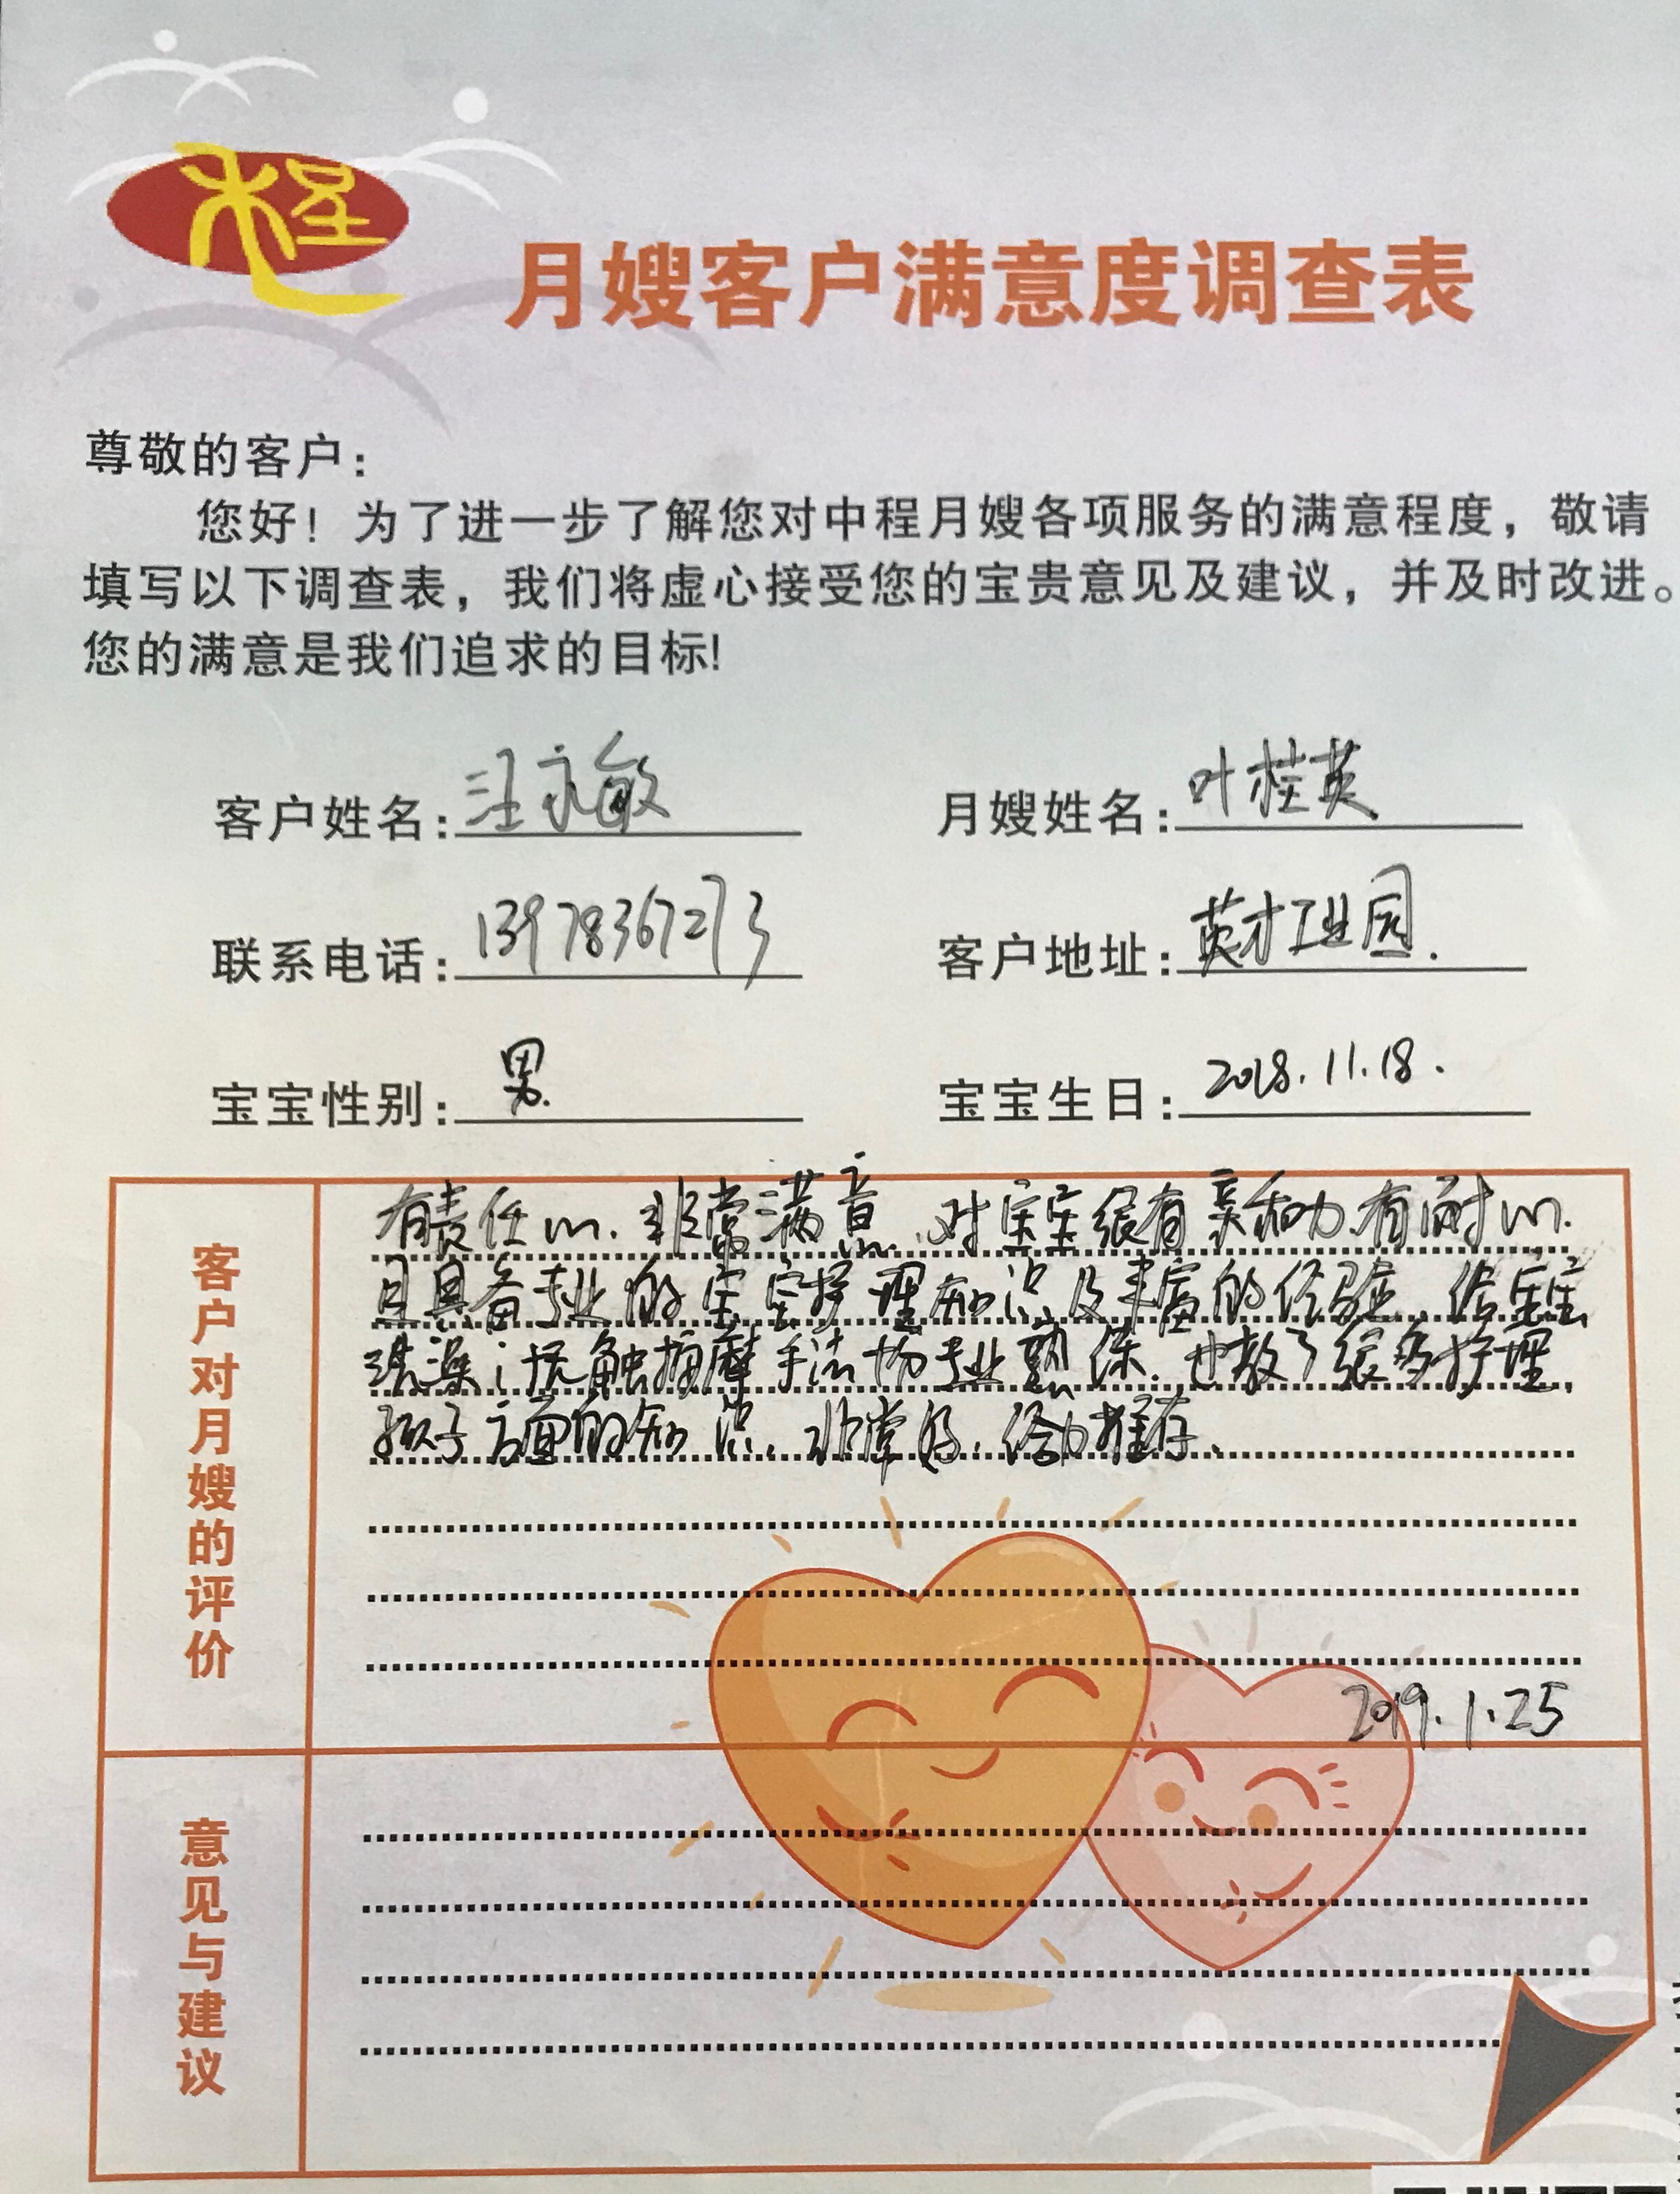 程
月嫂客户满意度调查表
尊敬的客户:
您好！为了进一步了解您对中程月嫂各项服务的满意程度，敬请
填写以下调查表，我们将虚心接受您的宝贵意见及建议，并及时改进。
您的满意是我们追求的目标!
客户姓名: 汪永敏 月嫂姓名: 叶桂英
联系电话: 13978367273 客户地址: 英才工业园.
宝宝性别: 男. 宝宝生日: 2018.11.18.
客户对月嫂的评价
有责任心.非常满意.对宝宝很有亲和力.有耐心.
且具备专业的宝宝护理知识及丰富的经验.给宝宝
洗澡;抚触按摩手法均专业熟练.也教了很多护理
孩子方面的知识.非常好.给力推荐.
2019.1.25
意见与建议